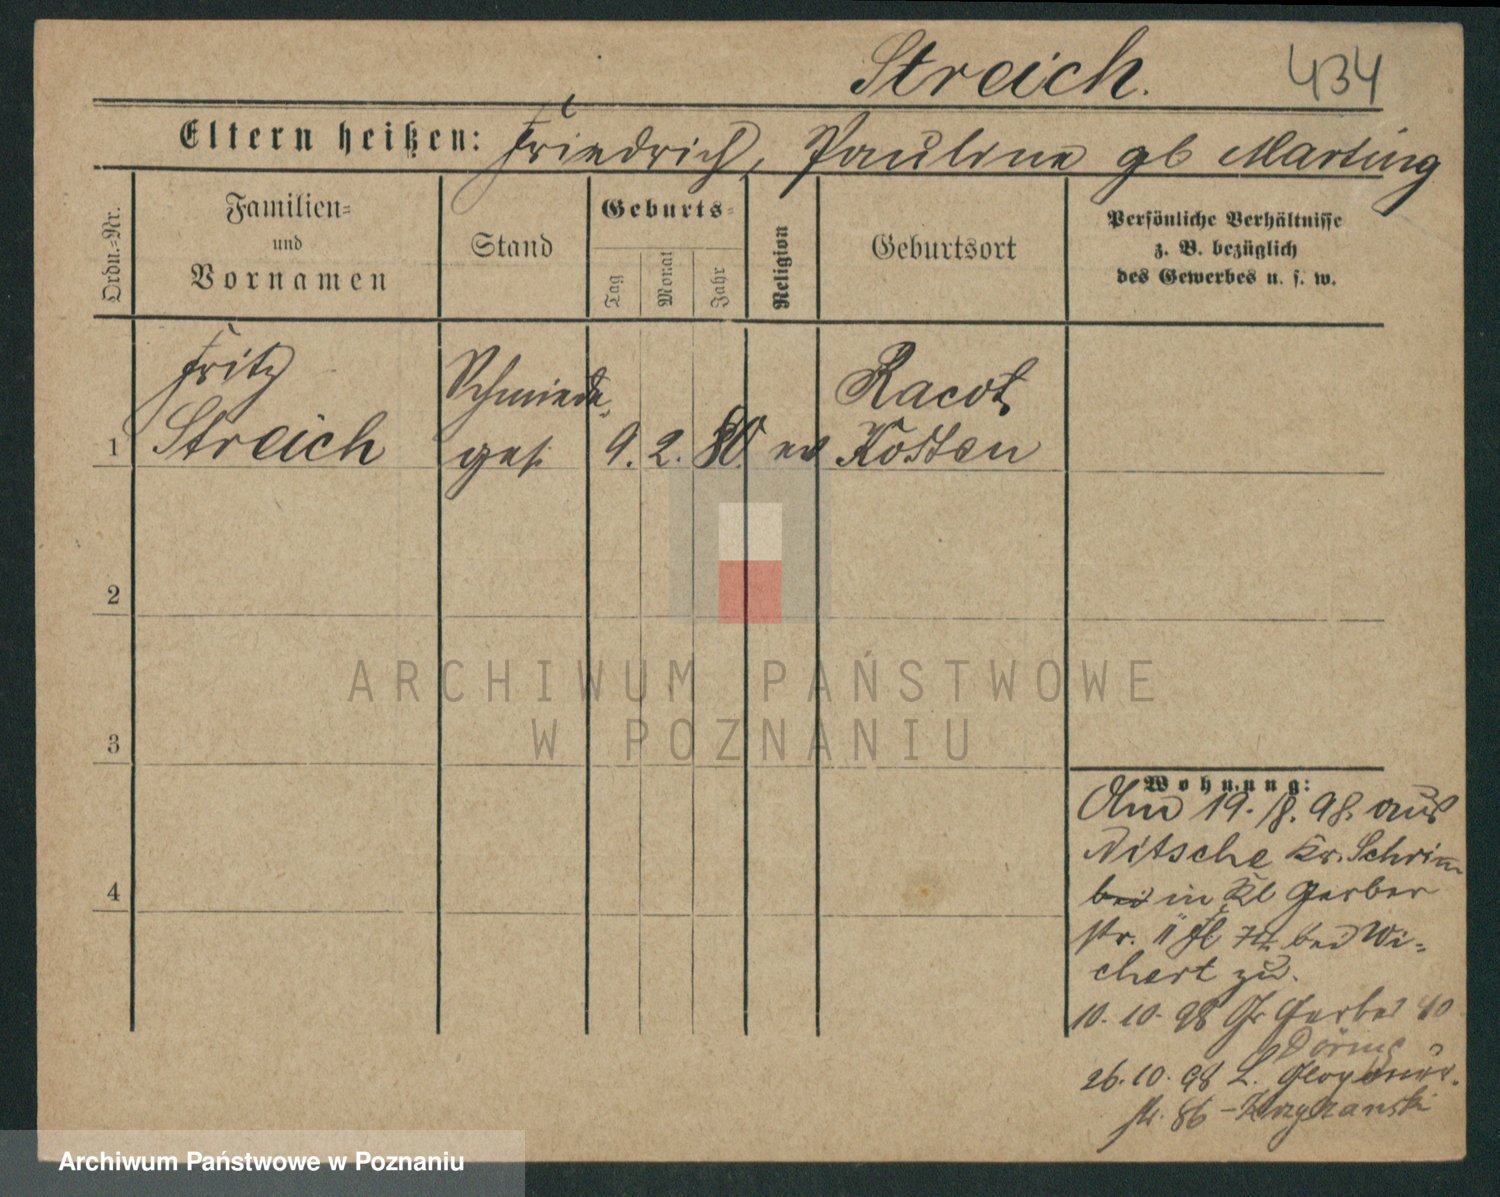 Streich. 434
Eltern heißen: Friedrich, Pauline gb Marting
Ordn.=Nr.
Familien=
und
Vornamen
Stand
Geburts=
Tag
Monat
Jahr
Religion
Geburtsort
Persönliche Verhältnisse
z. B. bezüglich
des Gewerbes u. s. w.
Fritz Schmiede Racot
1 Streich ges. 9. 2. 80. ev Kosten
2
3
4
Wohnung:
Am 19. /8. 98. aus
Nitsche Kr. Schrim
bei in Kl Gerber
str. 11 bei Wi=
chert zu.
10. 10. 98 Gr Gerber 40
Döring
26. 10. 98
str. 86 -
ARCHIWUM PAŃSTWOWE
W POZNANIU
Archiwum Państwowe w Poznaniu